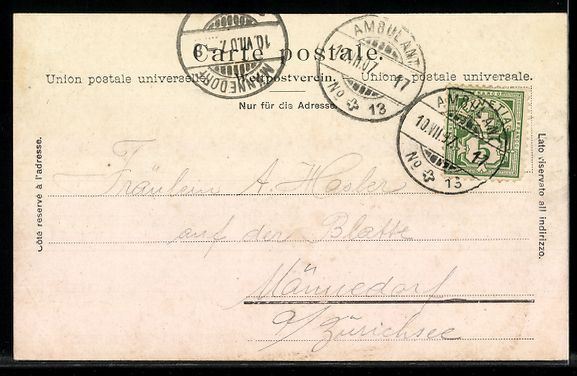 Carte postale.
Union postale universelle. Weltpostverein. Unione postale universale.
Nur für die Adresse
Côté réservé à l'adresse.
Lato riservato all indirizzo.
MÄNNEDORF
10.VII.07
AMBULANT
10.VII.07 17
No 13
AMBULANT
10.VII.07 17
No 13
Fräulein A. Hasler
auf der Blatte
Männedorf
a/Zürichsee